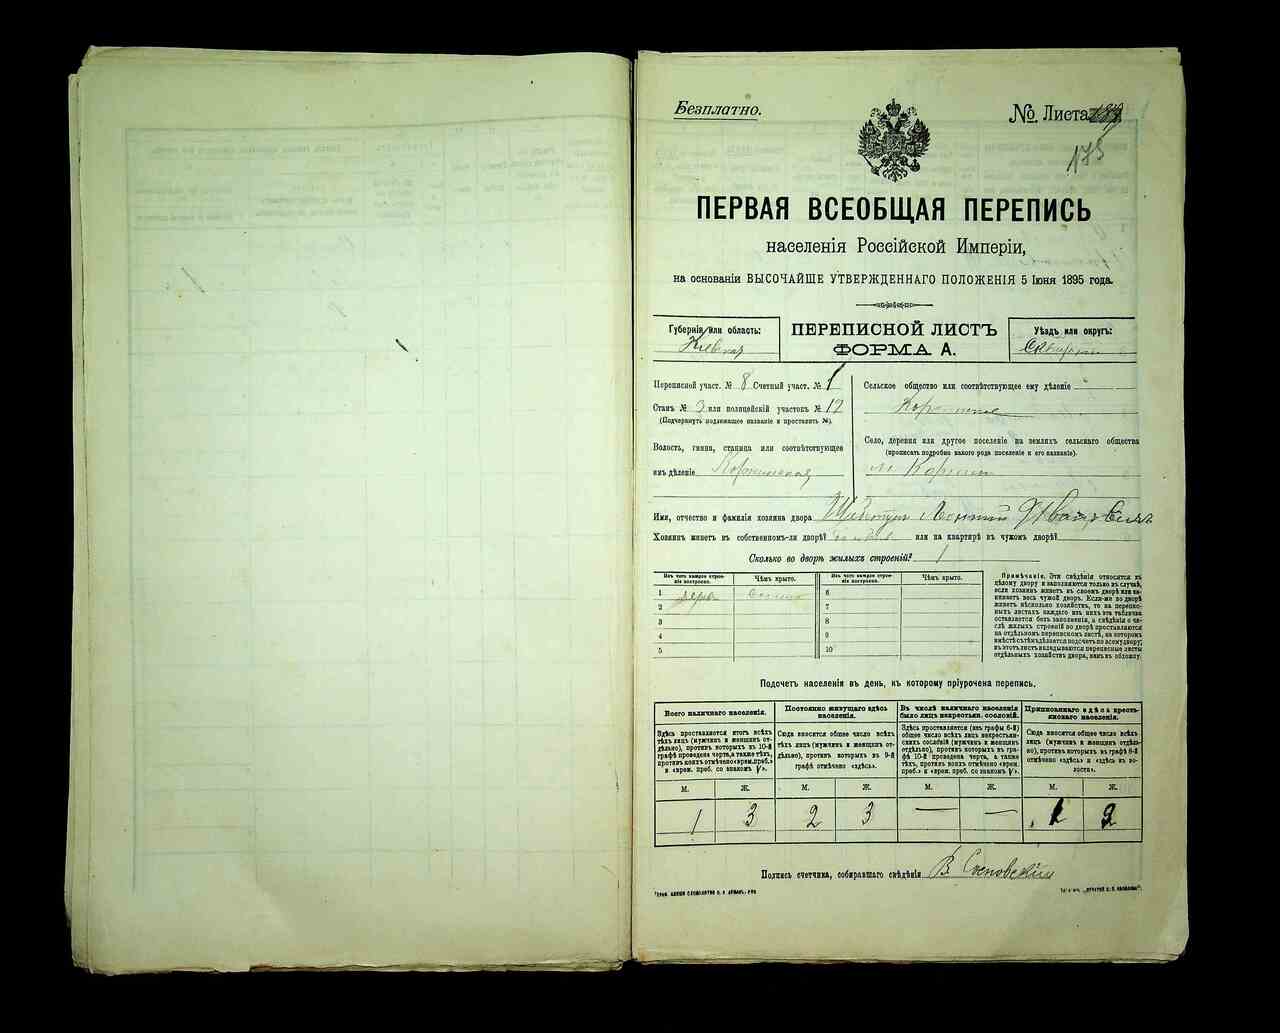 Безплатно.
№ Листа
175
ПЕРВАЯ ВСЕОБЩАЯ ПЕРЕПИСЬ
населенія Россійской Имперіи,
на основаніи ВЫСОЧАЙШЕ УТВЕРЖДЕННАГО ПОЛОЖЕНІЯ 5 Іюня 1895 года.
Губернія или область:
Кіевская
ПЕРЕПИСНОЙ ЛИСТЪ
ФОРМА А.
Уѣздъ или округъ:
Переписной участ. № 8 Счетный участ. № 1
Станъ № 3 или полицейскій участокъ № 12
(Подчеркнуть подлежащее названіе и проставить №).
Волость, гмина, станица или соотвѣтствующее
имъ дѣленіе
Сельское общество или соотвѣтствующее ему дѣленіе
Село, деревня или другое поселеніе на земляхъ сельскаго общества
(прописать подробно какого рода поселеніе и его названіе).
Имя, отчество и фамилія хозяина двора
Хозяинъ живетъ въ собственномъ-ли дворѣ? или на квартирѣ въ чужомъ дворѣ?
Сколько во дворѣ жилыхъ строеній? 1
Изъ чего каждое строеніе построено.
Чѣмъ крыто.
Изъ чего каждое строеніе построено.
Чѣмъ крыто.
1 6
2 7
3 8
4 9
5 10
Примѣчаніе. Эти свѣдѣнія относятся къ
цѣлому двору и заполняются только въ случаѣ,
если хозяинъ живетъ въ своемъ дворѣ или занимаетъ весь чужой дворъ. Если-же во дворѣ
живетъ нѣсколько хозяйствъ, то на переписныхъ листахъ каждаго изъ нихъ эта табличка
оставляется безъ заполненія, а свѣдѣнія о числѣ жилыхъ строеній во дворѣ проставляются
на отдѣльномъ переписномъ листѣ, на которомъ
вмѣстѣ съ тѣмъ дѣлается подсчетъ по всему двору;
въ этотъ листъ вкладываются переписные листы
отдѣльныхъ хозяйствъ двора, какъ въ обложку.
Подсчетъ населенія въ день, къ которому пріурочена перепись.
Всего наличнаго населенія.
Здѣсь проставляется итогъ всѣхъ
тѣхъ лицъ (мужчинъ и женщинъ отдѣльно), противъ которыхъ въ 10-й
графѣ проведена черта, а также тѣхъ,
противъ коихъ отмѣчено «врем. преб.»
и «врем. преб. со знакомъ V».
Постоянно живущаго здѣсь
населенія.
Сюда вносится общее число всѣхъ
тѣхъ лицъ (мужчинъ и женщинъ отдѣльно), противъ которыхъ въ 9-й
графѣ отмѣчено «здѣсь».
Въ числѣ наличнаго населенія
было лицъ некрестьян. сословій.
Здѣсь проставляется (изъ графы 6-й)
общее число всѣхъ лицъ некрестьянскихъ сословій (мужчинъ и женщинъ
отдѣльно), противъ которыхъ въ графѣ 10-й проведена черта, а также
тѣхъ, противъ коихъ отмѣчено «врем.
преб.» и «врем. преб. со знакомъ V».
Приписаннаго здѣсь крестьянскаго населенія.
Сюда вносится общее число всѣхъ
лицъ (мужчинъ и женщинъ отдѣльно), противъ которыхъ въ графѣ 8-й
отмѣчено «здѣсь» и «здѣсь въ волости».
М. Ж. М. Ж. М. Ж. М. Ж.
1 3 2 3 — — 2
Подпись счетчика, собиравшаго свѣдѣнія